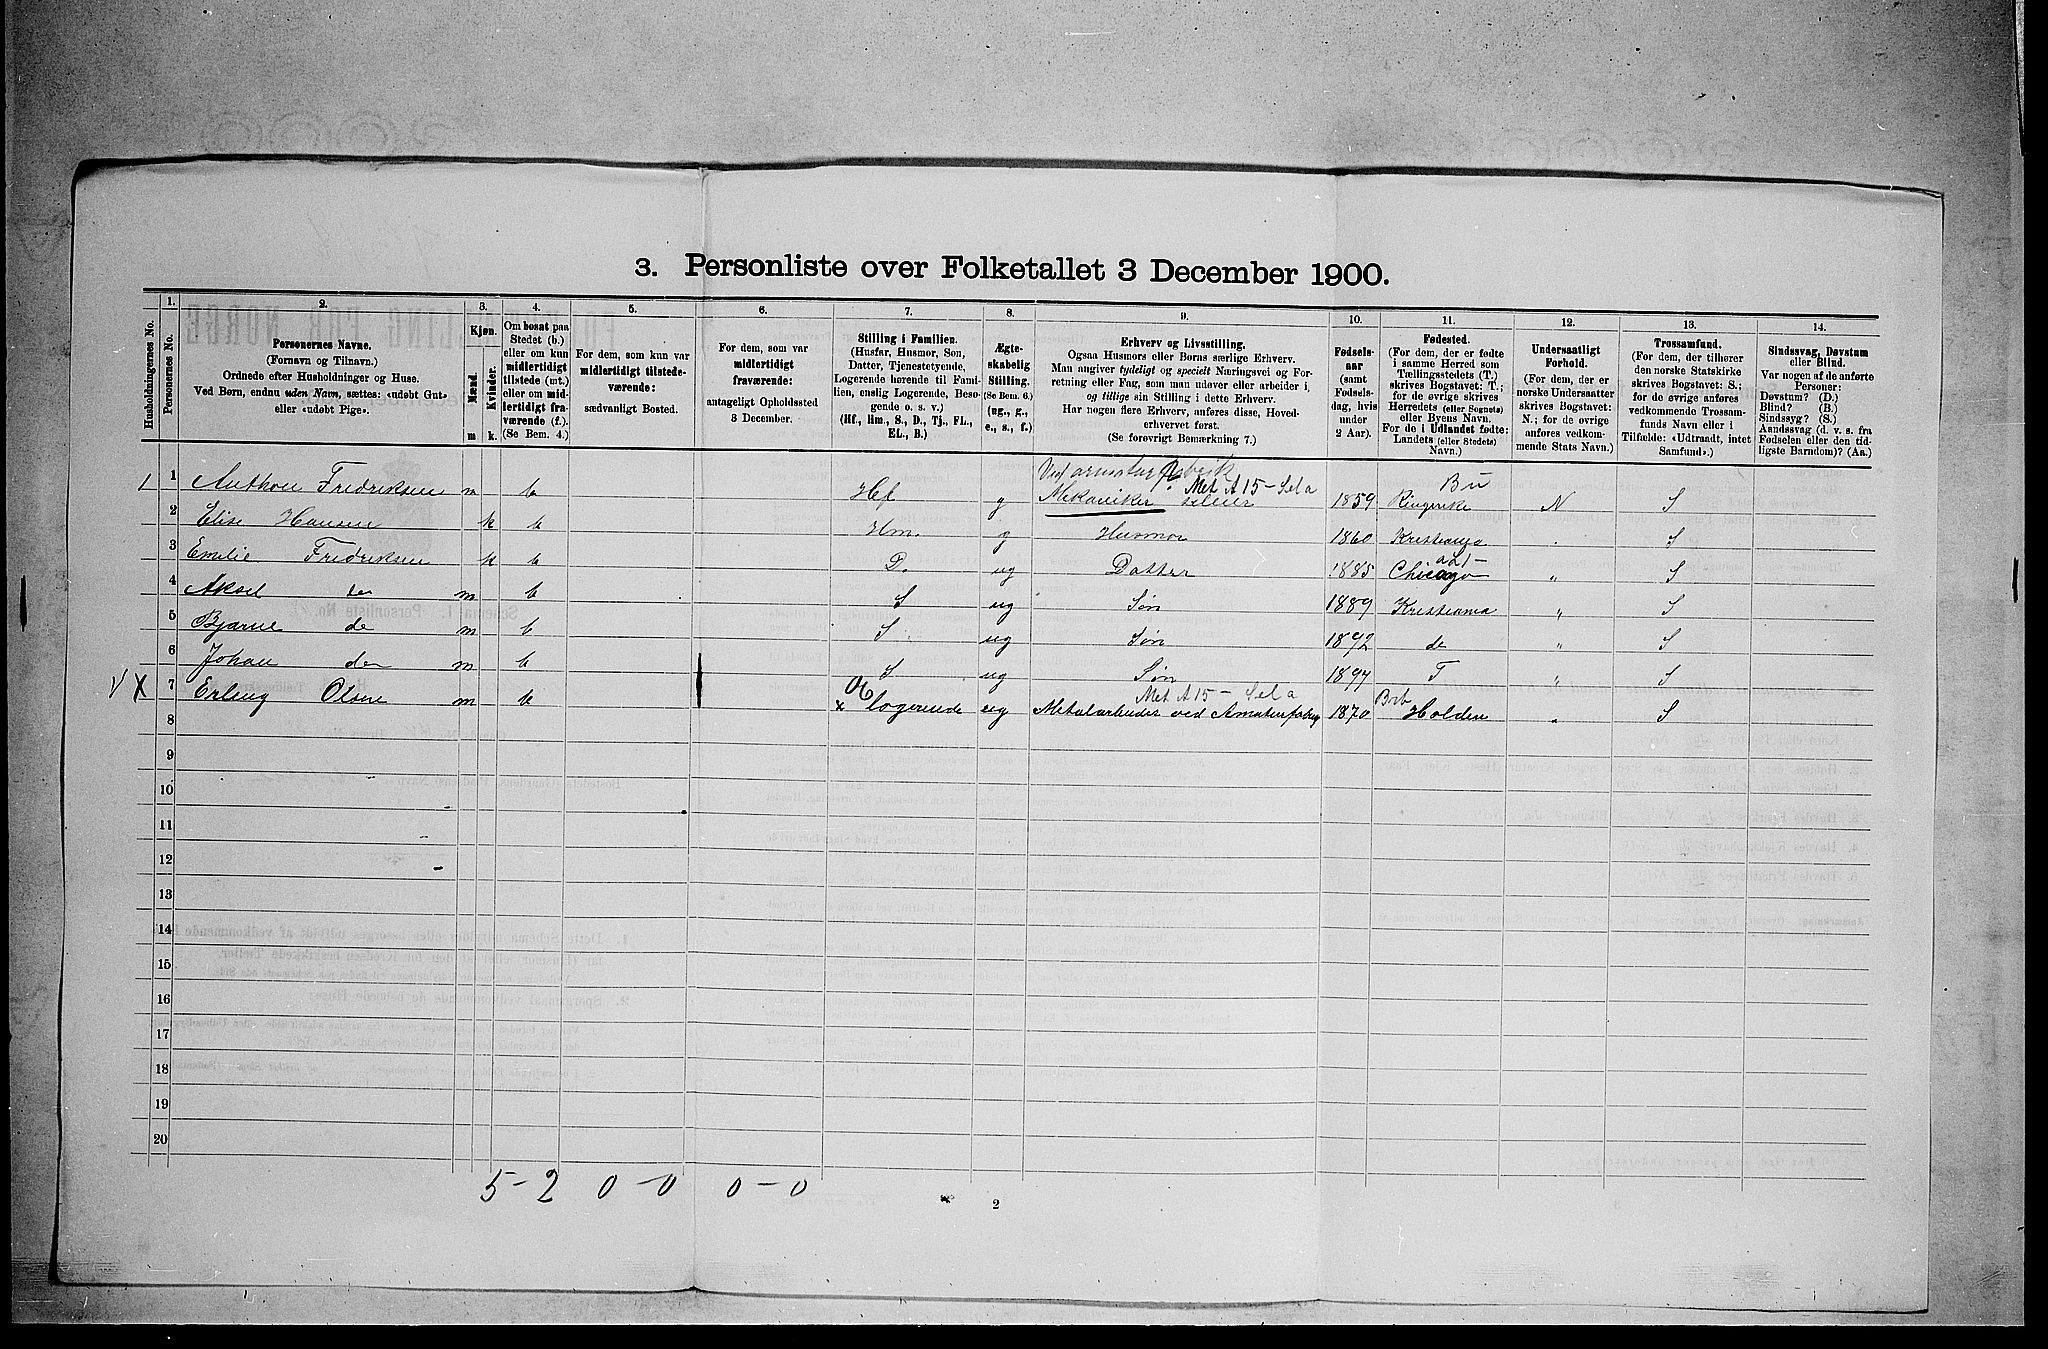 3. Personliste over Folketallet 3 December 1900.
Husholdningernes No.
1.
Personernes No.
2.
Personernes Navne.
(Fornavn og Tilnavn.)
Ordnede efter Husholdninger og Huse.
Ved Børn, endnu uden Navn, sættes: «udøbt Gut»
eller «udøbt Pige».
3.
Kjøn.
Mænd.
Kvinder.
m k.
4.
Om bosat paa
Stedet (b.)
eller om kun
midlertidigt
tilstede (mt.)
eller om mid-
lertidigt fra-
værende (f.).
(Se Bem. 4.)
5.
For dem, som kun var
midlertidigt tilstede-
værende:
sædvanligt Bosted.
6.
For dem, som var
midlertidigt
fraværende:
antageligt Opholdssted
3 December.
7.
Stilling i Familien.
(Husfar, Husmor, Søn,
Datter, Tjenestetyende,
Logerende hørende til Fami-
lien, enslig Logerende, Besø-
gende o. s. v.)
(Hf., Hm., S., D., Tj., FL.,
EL., B.)
8.
Ægte-
skabelig
Stilling.
(Se Bem. 6.)
(ug., g.,
e., s., f.)
9.
Erhverv og Livsstilling.
Ogsaa Husmors eller Børns særlige Erhverv.
Man angiver tydeligt og specielt Næringsvei og For-
retning eller Fag, som man udøver eller arbeider i,
og tillige sin Stilling i dette Erhverv.
Har nogen flere Erhverv, anføres disse, Hoved-
erhvervet først.
(Se forøvrigt Bemærkning 7.)
10.
Fødsels-
aar
(samt
Fødsels-
dag, hvis
under
2 Aar).
11.
Fødested.
(For dem, der er fødte
i samme Herred som
Tællingsstedets (T.)
skrives Bogstavet: T.;
for de øvrige skrives
Herredets (eller Sognets)
eller Byens Navn.
For de i Udlandet fødte:
Landets (eller Stedets)
Navn.)
12.
Undersaatligt
Forhold.
(For dem, der er
norske Undersaatter
skrives Bogstavet:
N.; for de øvrige
anføres vedkom-
mende Stats Navn.)
13.
Trossamfund.
(For dem, der tilhører
den norske Statskirke
skrives Bogstavet: S.;
for de øvrige anføres
vedkommende Trossam-
funds Navn eller i
Tilfælde: «Udtraadt, intet
Samfund».)
14.
Sindssvag, Døvstum
eller Blind.
Var nogen af de anførte
Personer:
Døvstum? (D.)
Blind? (B.)
Sindssyg? (S.)
Aandssvag (d. v. s. fra
Fødselen eller den tid-
ligste Barndom)? (Aa.)
Ved armatur fabrik Bu
1 1 Anthon Fredriksen m b Hf g Mekaniker Met A15 - Sela 1859 Ringerike N S
2 Elise Hansen k b Hm. g Husmor 1860 Kristiania . S
3 Emelie Fredriksen k b D. ug Datter 1885 Chicago " S
4 Aksel de m b S ug Søn 1889 Kristiania " S
5 Bjarne de m b S ug Søn 1892 de " S
6 Johan de m b S ug Søn 1897 T " S
Met A15 - Sela
V X 7 Erling Olsen m b x logerende ug Metalarbeider ved Amaturfabrig 1870 Holden " S
8
9
10
11
12
13
14
15
16
17
18
19
20
5-2 0-0 0-0
2